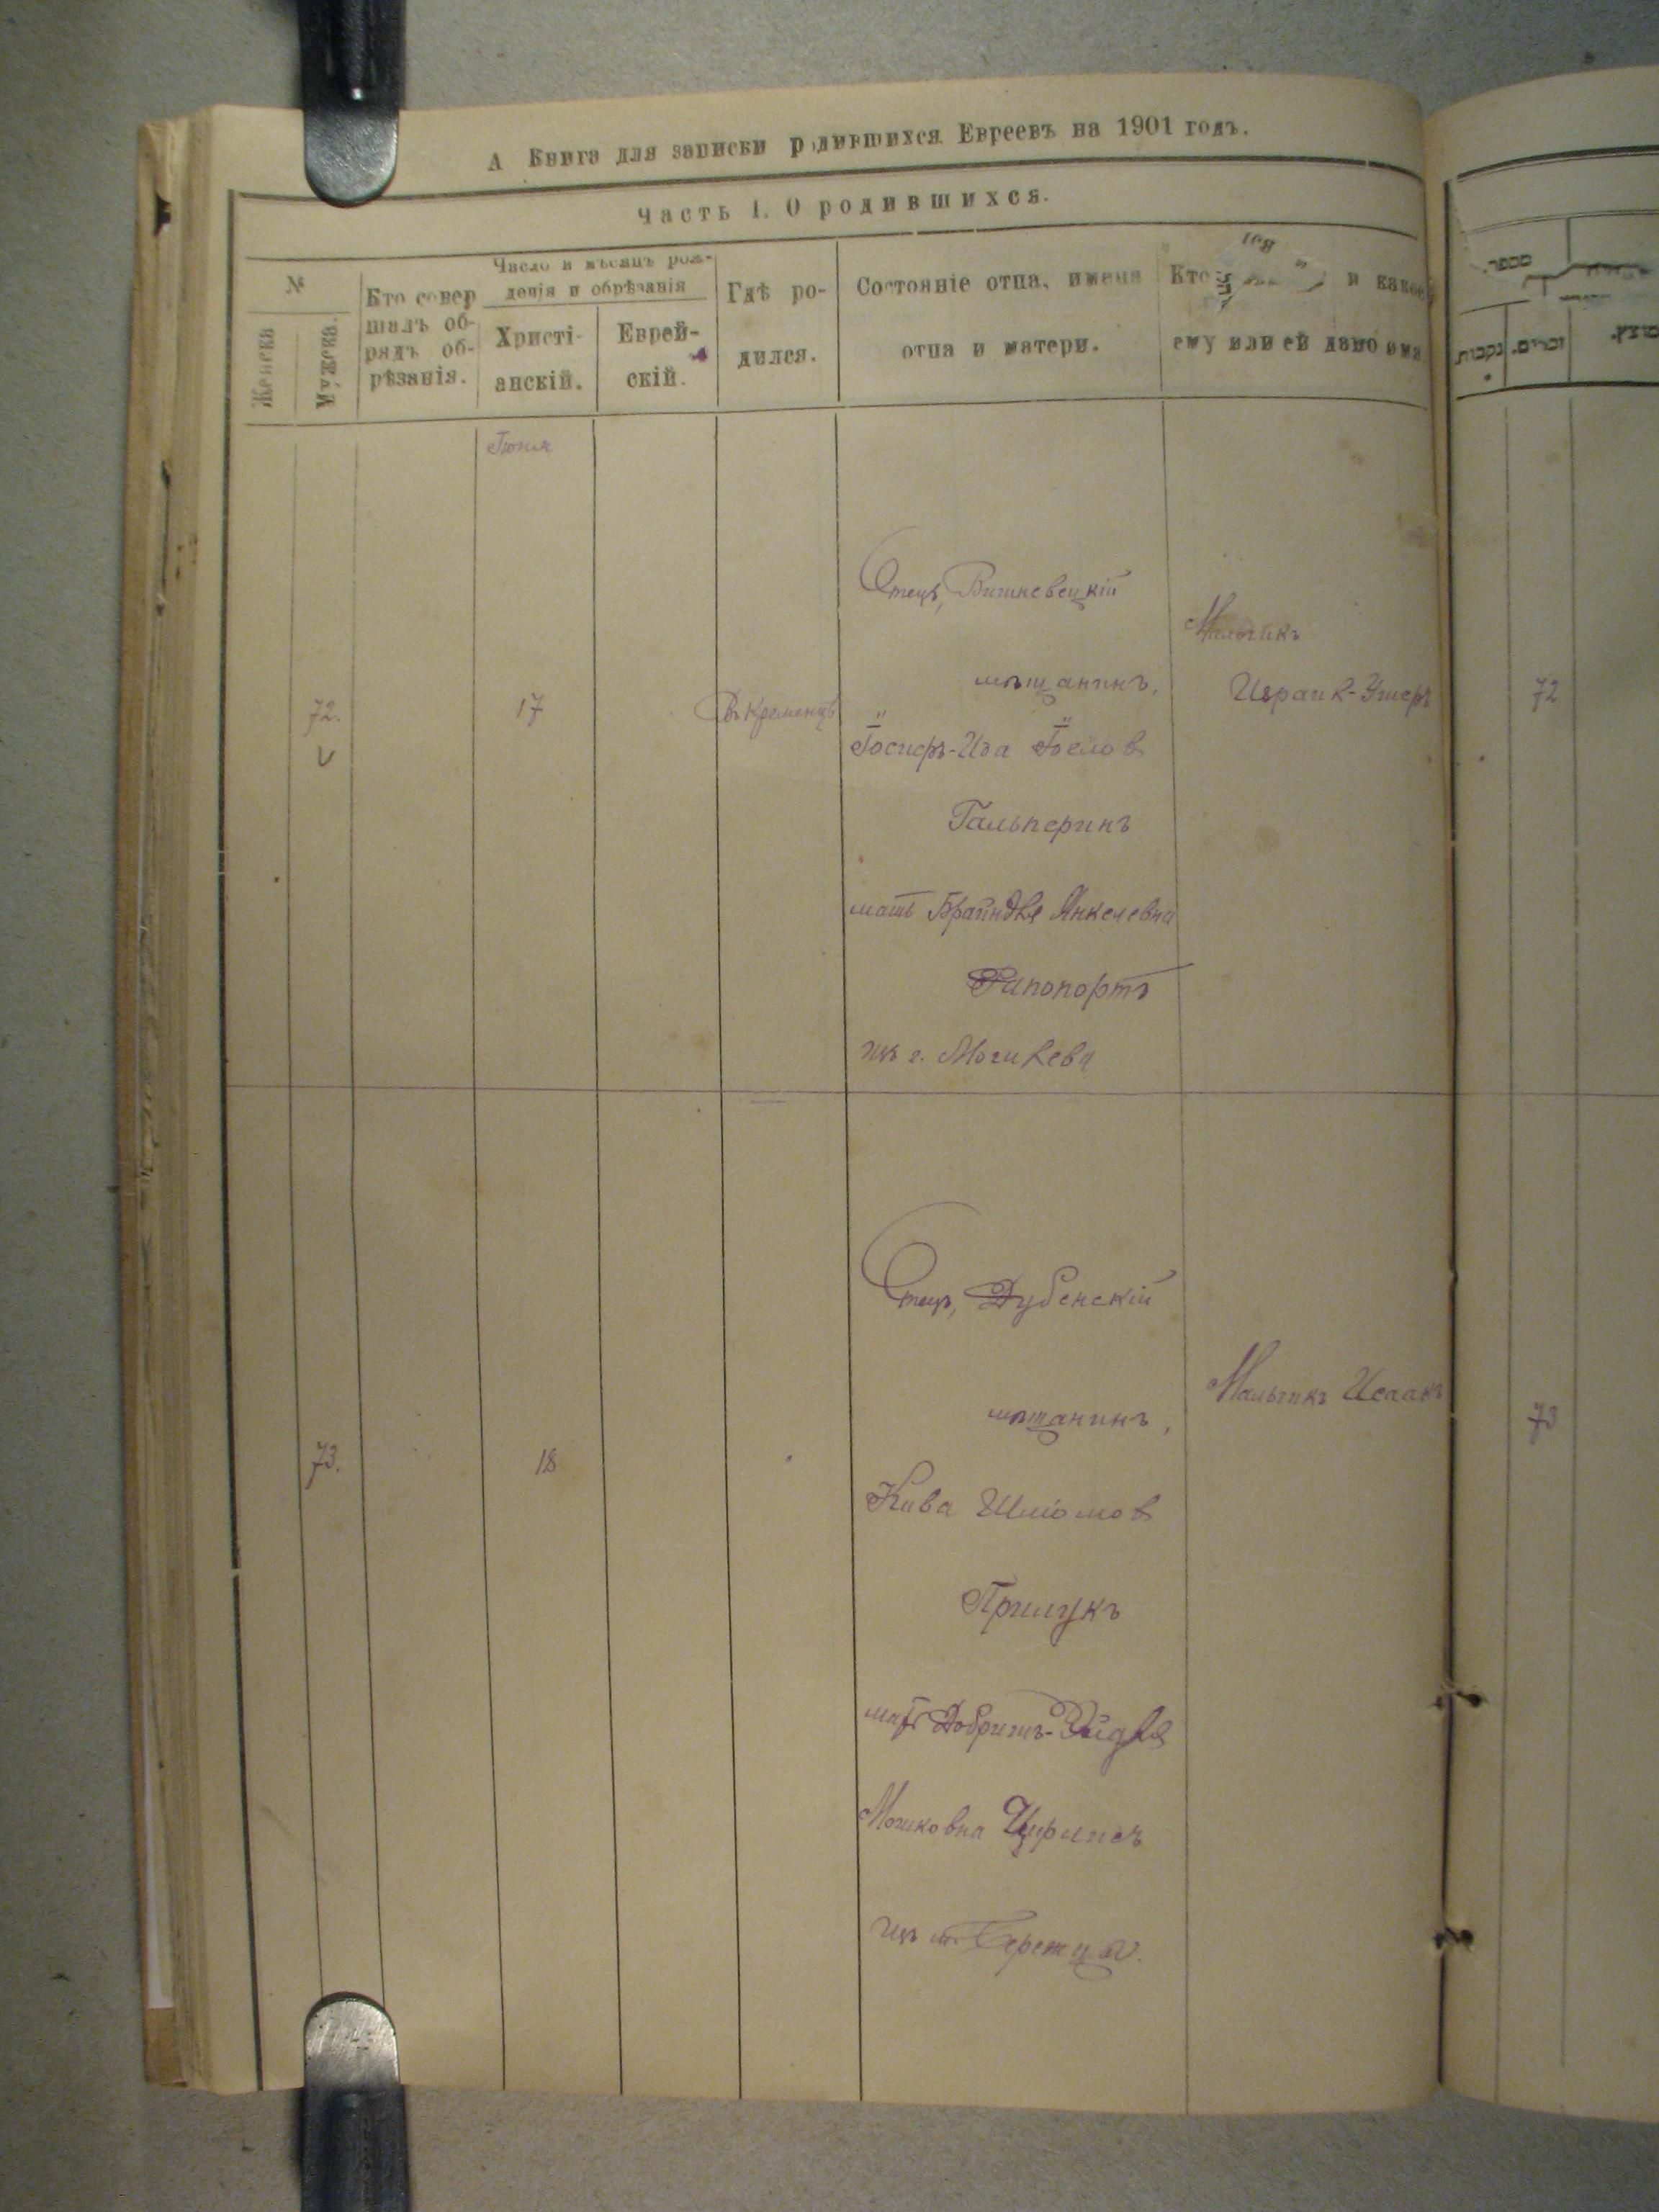 А Книга для записки родившихся Евреевъ на 1901 годъ.
Часть I. О родившихся.
№
Женска
Мужска.
Кто совер
шалъ об-
рядъ об-
рѣзанія.
Число и мѣсяцъ рож-
денія и обрѣзанія
Христі-
анскій.
Еврей-
скій.
Гдѣ ро-
дился.
Состояніе отца, имена
отца и матери.
Кто и какое
ему или ей дано имя
Іюня
72.
17
Въ Кременцѣ
Отецъ, Вишневецкій
мѣщанинъ,
Іосифъ-Иза Іоелов
Гальперинъ
мать Брайндля Янкелевна
Рапопортъ
изъ г. Могилева
Мальчикъ
Израил-Ушеръ
73.
18
Отецъ, Дубенскій
мѣщанинъ,
Кива Шліомов
Прилукъ
мать Добришъ-Эйдля
Мошковна
изъ м.
Мальчикъ Исаакъ
מספר
נקבות
זכרים.
72
73